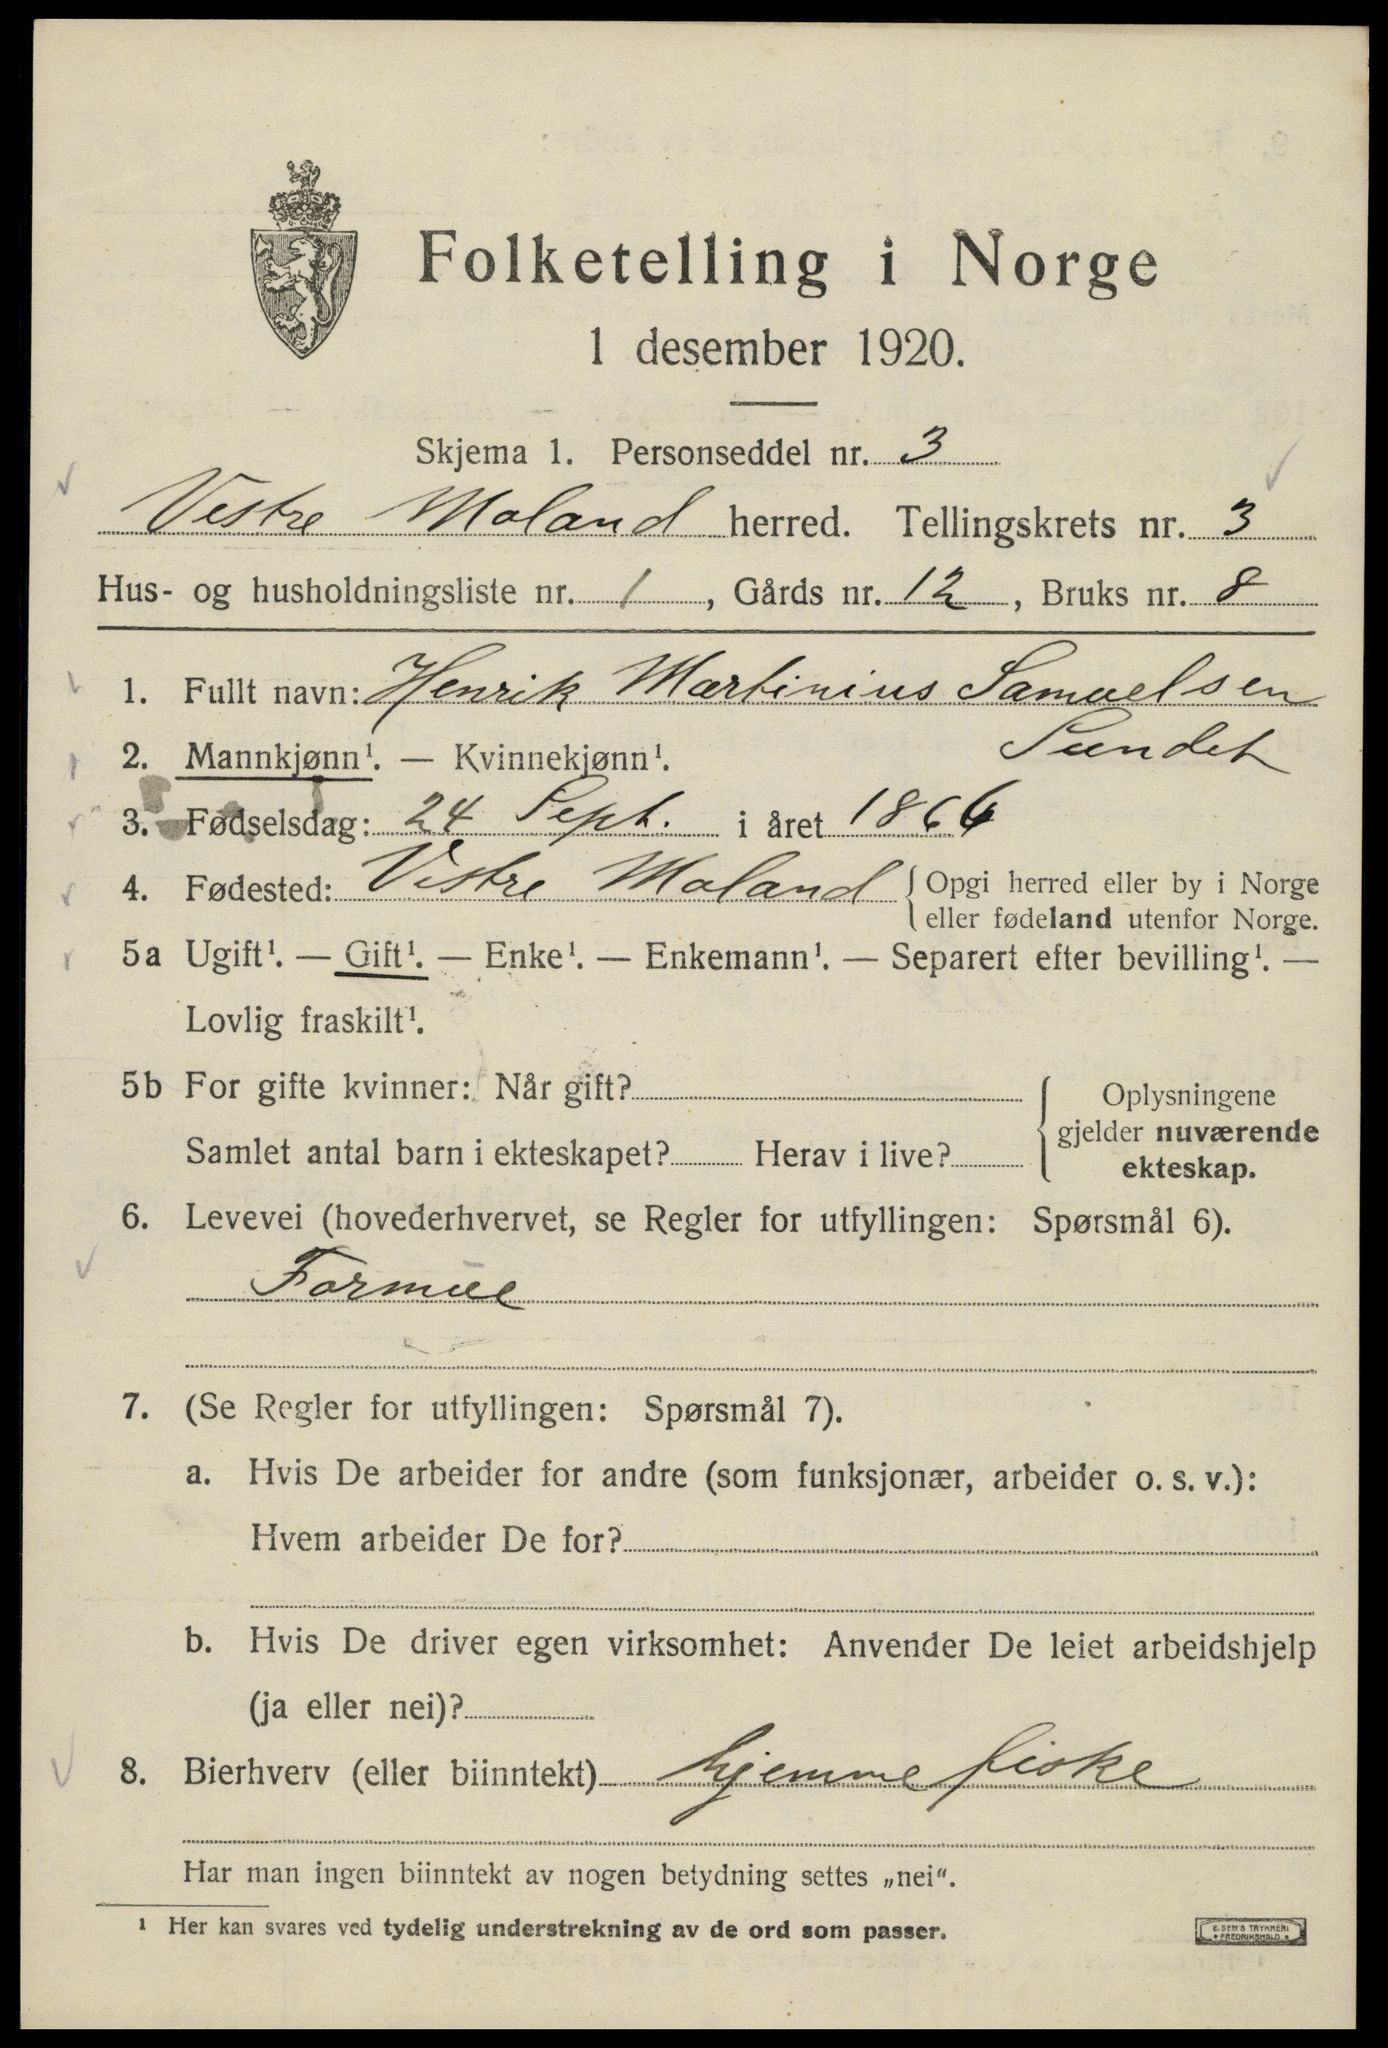 Folketelling i Norge
1 desember 1920.
Skjema 1. Personseddel nr. 3
Vestre Moland herred. Tellingskrets nr. 3
Hus- og husholdningsliste nr. 1, Gårds nr. 12, Bruks nr. 8
1. Fullt navn: Henrik Martinius Samuelsen
Sundet
2. Mannkjønn¹. — Kvinnekjønn¹.
3. Fødselsdag: 24 Sept. i året 1866
4. Fødested: Vestre Moland { Opgi herred eller by i Norge
eller fødeland utenfor Norge.
5a Ugift¹. — Gift¹. — Enke¹. — Enkemann¹. — Separert efter bevilling¹. —
Lovlig fraskilt¹.
5b For gifte kvinner: Når gift?
Samlet antal barn i ekteskapet? Herav i live?
{ Oplysningene
gjelder nuværende
ekteskap.
6. Levevei (hovederhvervet, se Regler for utfyllingen: Spørsmål 6).
Formue
7. (Se Regler for utfyllingen: Spørsmål 7).
a. Hvis De arbeider for andre (som funksjonær, arbeider o. s. v.):
Hvem arbeider De for?
b. Hvis De driver egen virksomhet: Anvender De leiet arbeidshjelp
(ja eller nei)?
8. Bierhverv (eller biinntekt) hjemme fiske
Har man ingen biinntekt av nogen betydning settes „nei“.
¹ Her kan svares ved tydelig understrekning av de ord som passer.
E. SEM'S TRYKKERI
FREDRIKSHALD